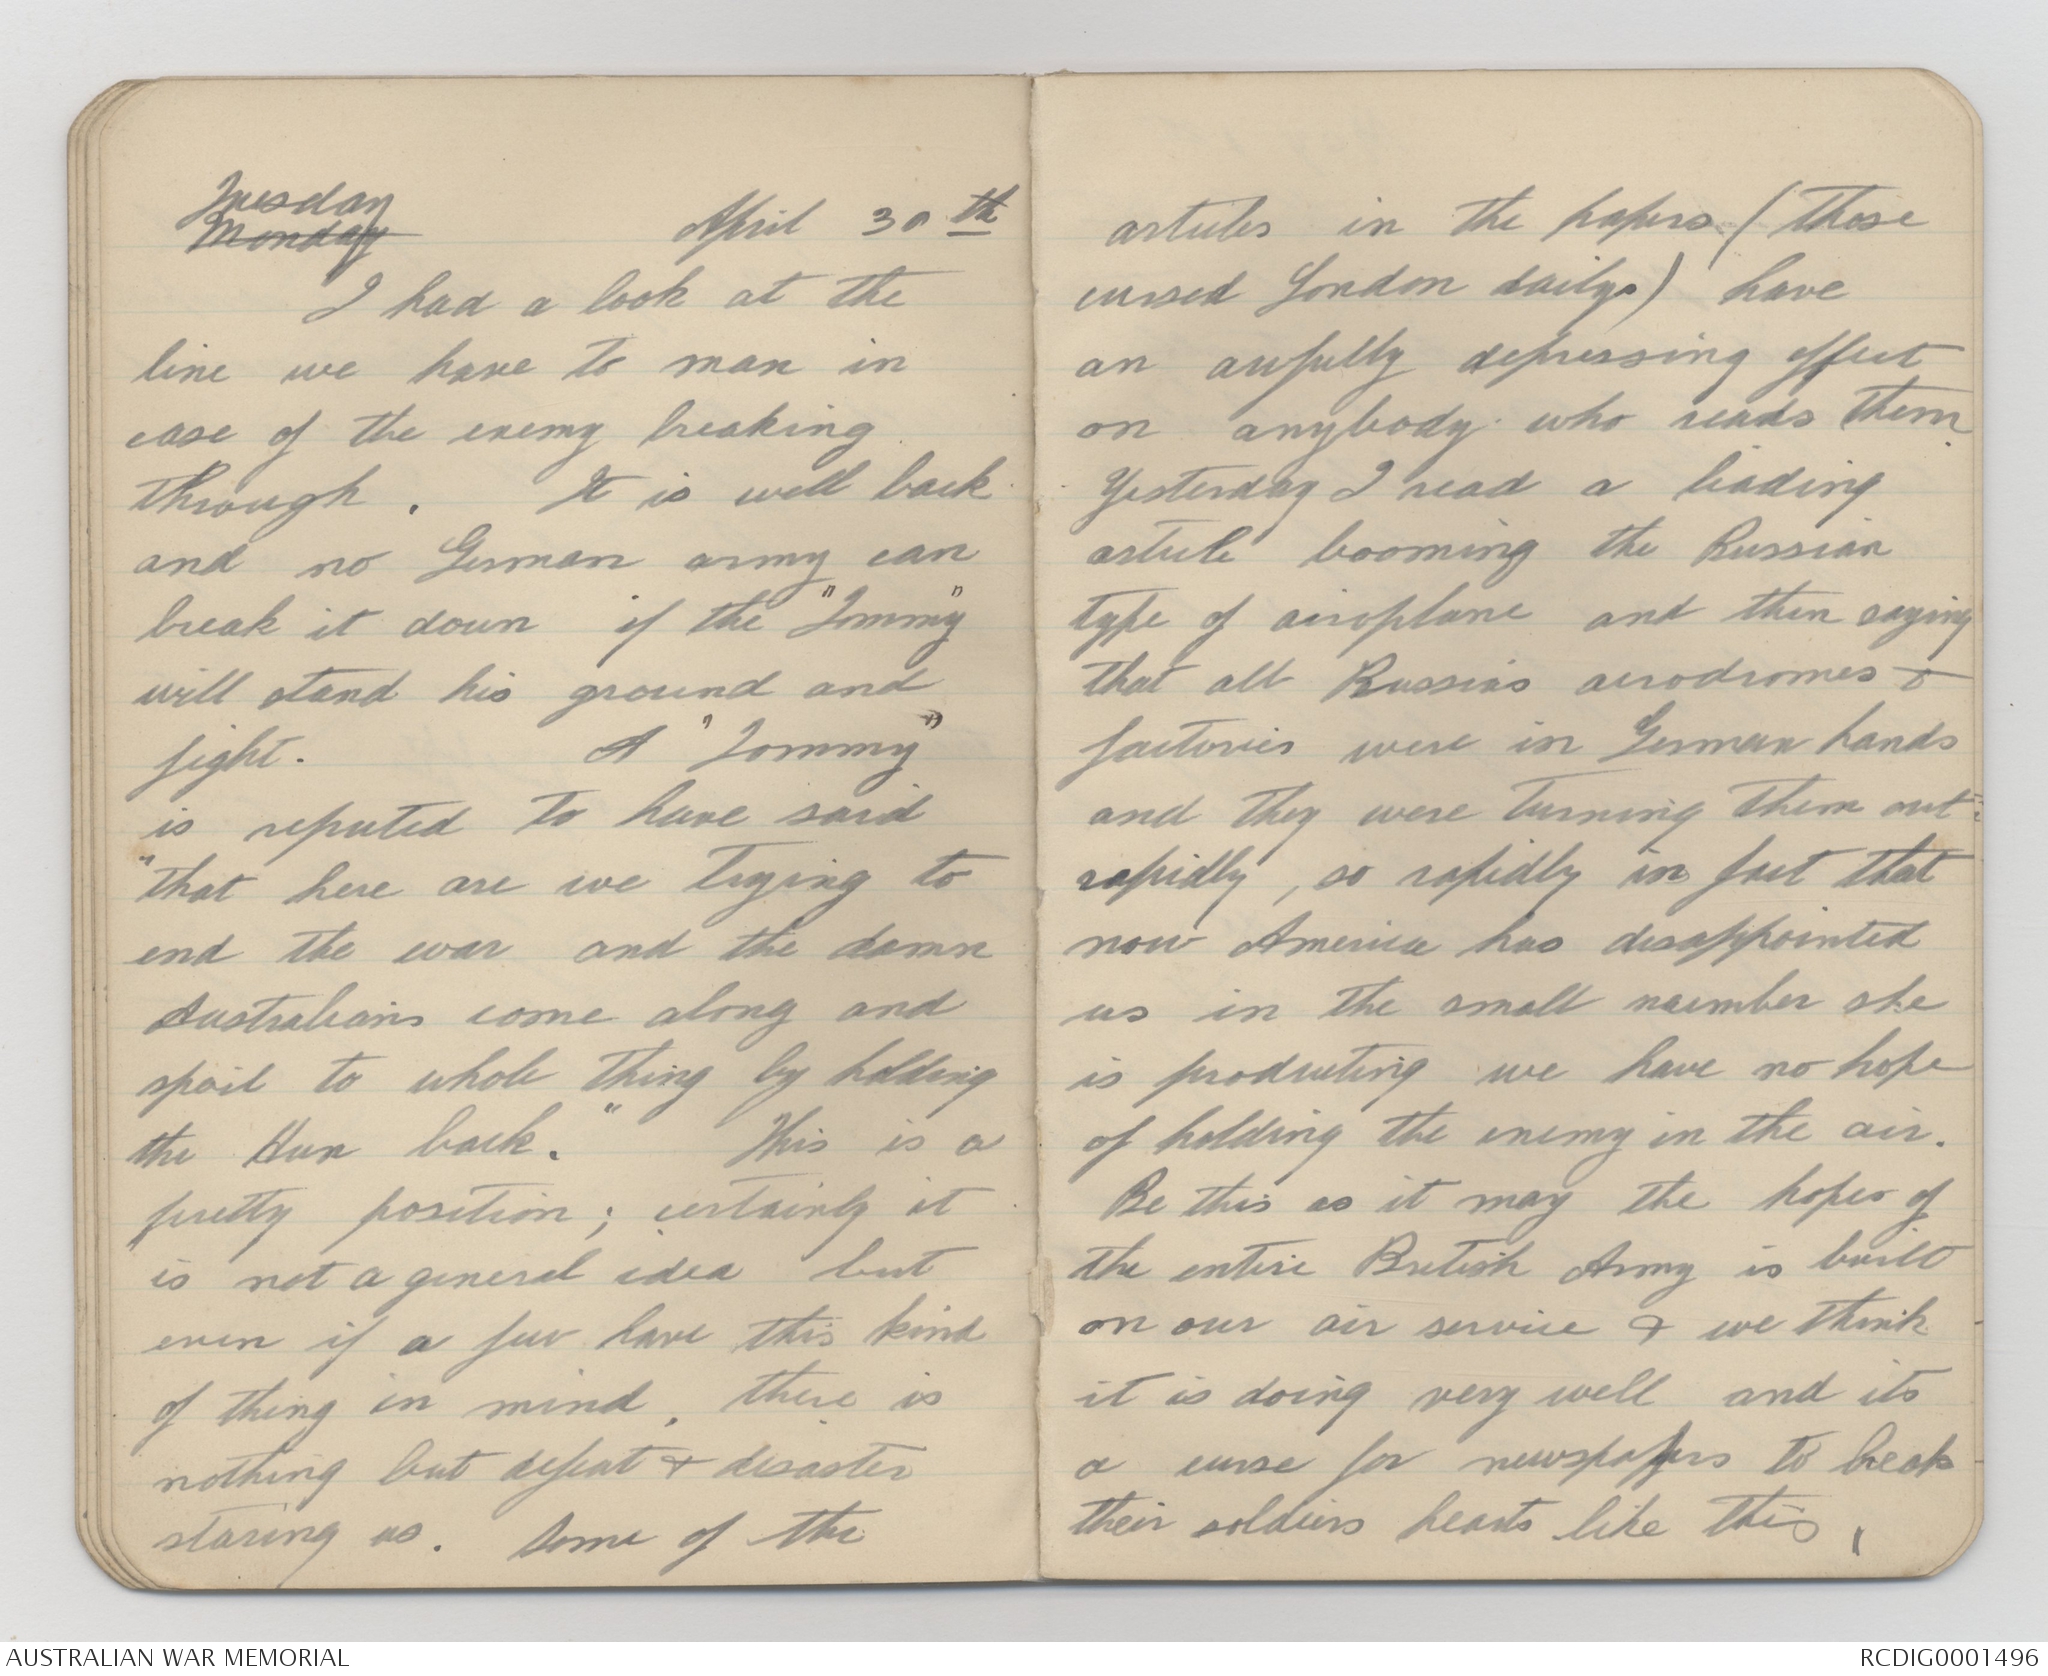 Tuesday
Monday April 30th
I had a look at the
line we have to man in
case of the enemy breaking
through. It is well back
and no German army can
break it down if the "Tommy"
will stand his ground and
fight. A "Tommy"
is reputed to have said
"that here are we trying to
end the war and the damn
Australians come along and
spoil to whole thing by holding
the Hun back." This is a
pretty position; certainly it
is not a general idea but
even if a few have this kind
of thing in mind, there is
nothing but defeat & disaster
staring us. Some of the
articles in the papers (those
cursed London dailys) have
an awfully depressing effect
on anybody who reads them.
Yesterday I read a leading
article booming the Russian
type of airoplane and then saying
that all Russias aerodromes &
factories were in German hands
and they were turning them out
rapidly, so rapidly in fact that
now America has disappointed
us in the small number she
is producting we have no hope
of holding the enemy in the air.
Be this as it may the hopes of
the entire British Army is built
on our air service & we think
it is doing very well and its
a curse for newspapers to break
their soldiers hearts like this,
AUSTRALIAN WAR MEMORIAL
RCDIG0001496